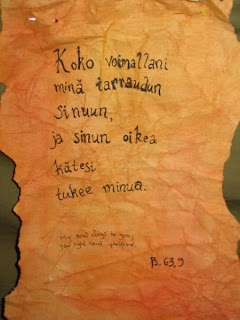 Koko voimallani
minä tarraudun
sinuun,
ja sinun oikea
kätesi
tukee minua.
My soul clings to you;
your right hand upholds me.
Ps. 63,9